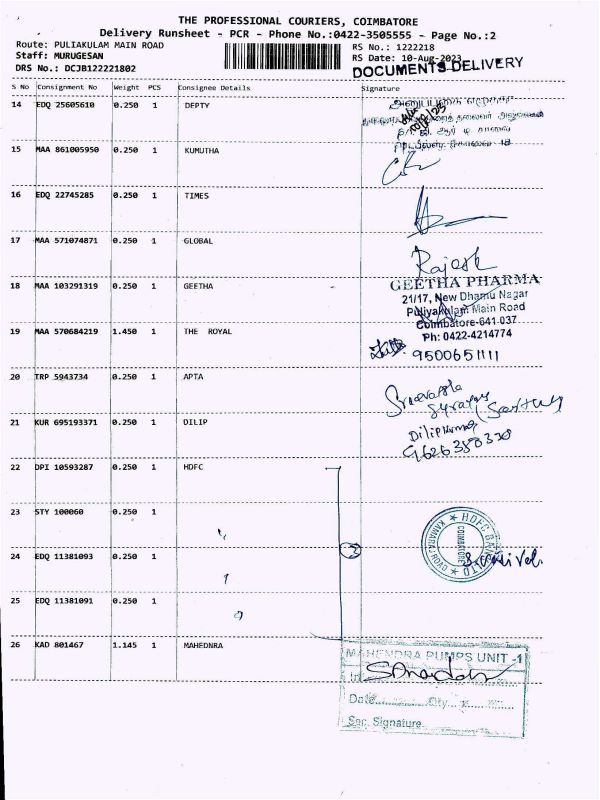 THE PROFESSIONAL COURIERS, COIMBATORE
Delivery Runsheet - PCR - Phone No.:0422-3505555 - Page No.:2
Route: PULIAKULAM MAIN ROAD RS No.: 1222218
Staff: MURUGESAN RS Date: 10-Aug-2023
DRS No.: DCJB122221802 DOCUMENTS DELIVERY
S No Consignment No Weight PCS Consignee Details Signature
14 EDQ 25605610 0.250 1 DEPTY
15 MAA 861005950 0.250 1 KUMUTHA
16 EDQ 22745285 0.250 1 TIMES
17 MAA 571074871 0.250 1 GLOBAL
Rajesh
18 MAA 103291319 0.250 1 GEETHA
GEETHA PHARMA
21/17, New Dhamu Nagar
Puliyakulam Main Road
Coimbatore-641 037
Ph: 0422-4214774
19 MAA 570684219 1.450 1 THE ROYAL
9500651111
20 TRP 5943734 0.250 1 APTA
21 KUR 695193371 0.250 1 DILIP
Dilipkumar
9626380330
22 DPI 10593287 0.250 1 HDFC
23 STY 100060 0.250 1
HDFC BANK LTD
COIMBATORE
KAMARAJ ROAD
24 EDQ 11381093 0.250 1
25 EDQ 11381091 0.250 1
26 KAD 801467 1.145 1 MAHEDNRA
MAHENDRA PUMPS UNIT -1
Date Qty
Sec. Signature